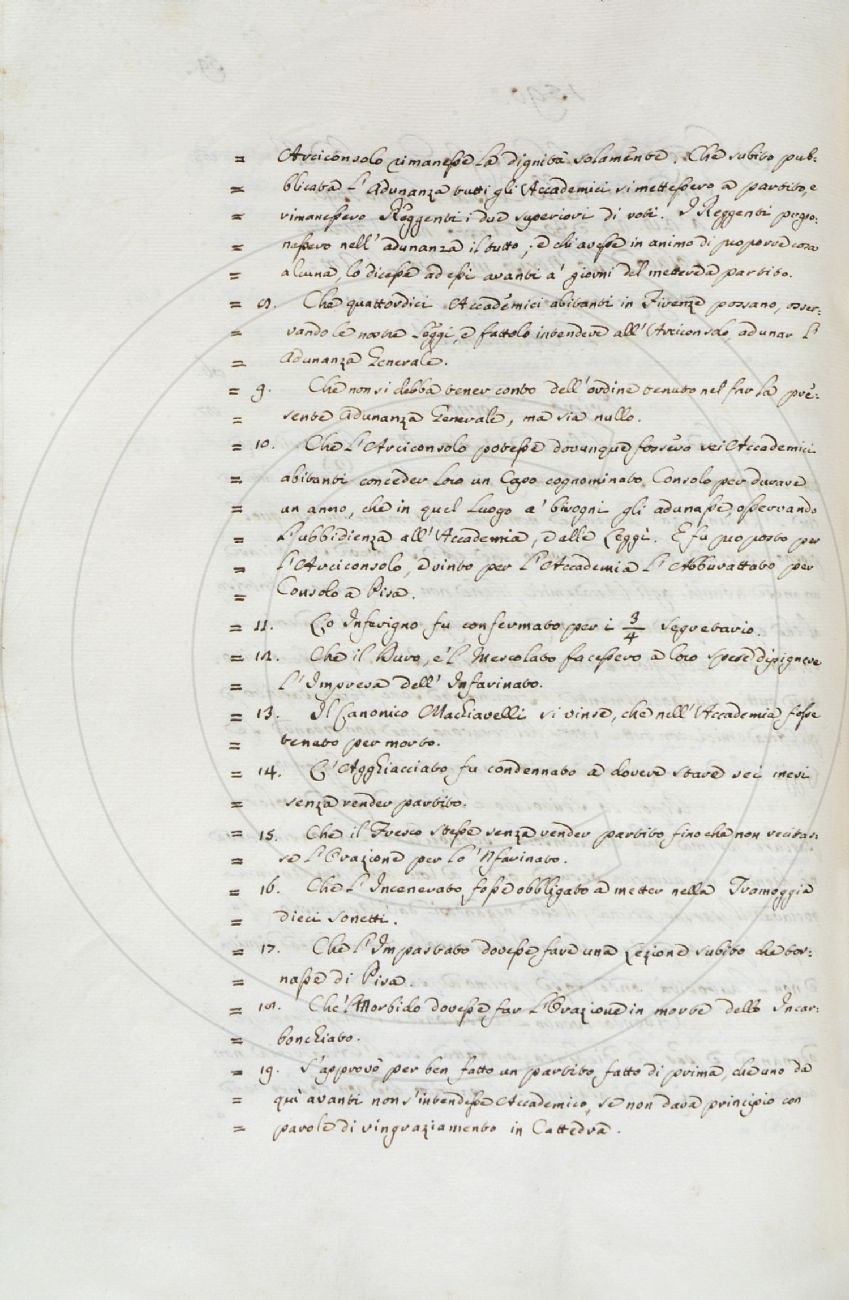 = Arciconsolo rimanesse la dignità solamente. Che subito pub=
= blicata l'Adunanza tutti gli Accademici si mettessero a partito, e
= rimanessero Reggenti i due superiori di voti. I Reggenti propo=
= nessero nell'adunanza il tutto; e chi avesse in animo di proporre cosa
= alcuna, lo dicesse ad essi avanti a' giorni del mettere a partito.
= 8. Che quattordici Accademici abitanti in Firenze possano, osser=
= vando le nostre Leggi, e fattolo intendere all'Arciconsolo, adunar l'
= Adunanza Generale.
= 9. Che non si debba tener conto dell'ordine tenuto nel far la pre=
= sente Adunanza Generale, ma sia nullo.
= 10. Che l'Arciconsolo potesse dovunque fossero sei Accademici
= abitanti conceder loro un Capo cognominato Consolo per durare
= un anno, che in quel luogo a' bisogni gli adunasse, osservando
= l'ubbidienza all'Accademia, e alle Leggi. E fu proposto per
= l'Arciconsolo, e vinto per l'Accademia l'Abburattato per
= Consolo a Pisa.
= 11. Lo Inferigno fu confermato per i 3/4 Segretario.
= 12. Che il Duro, e 'l Mescolato facessero a loro spese dipignere
= l'Impresa dell'Infarinato.
= 13. Il Canonico Machiavelli si vinse, che nell'Accademia fosse
= tenuto per morto.
= 14. L'Agghiacciato fu condennato a dovere stare sei mesi
= senza render partito.
= 15. Che il Fresco stesse senza render partito fino che non recitas=
= se l'Orazione per lo 'Nfarinato.
= 16. Che l'Incenerato fosse obbligato a metter nella Tramoggia
= dieci sonetti.
= 17. Che l'Impastato dovesse fare una Lezione subito che tor=
= nasse di Pisa.
= 18. Che 'l Morbido dovesse far l'Orazione in morte dello Incar=
= bonchiato.
= 19. S'approvò per ben fatto un partito, fatto di prima, che uno da
= quì avanti non s'intendesse Accademico, se non dava principio con
= parole di ringraziamento in Cattedra.